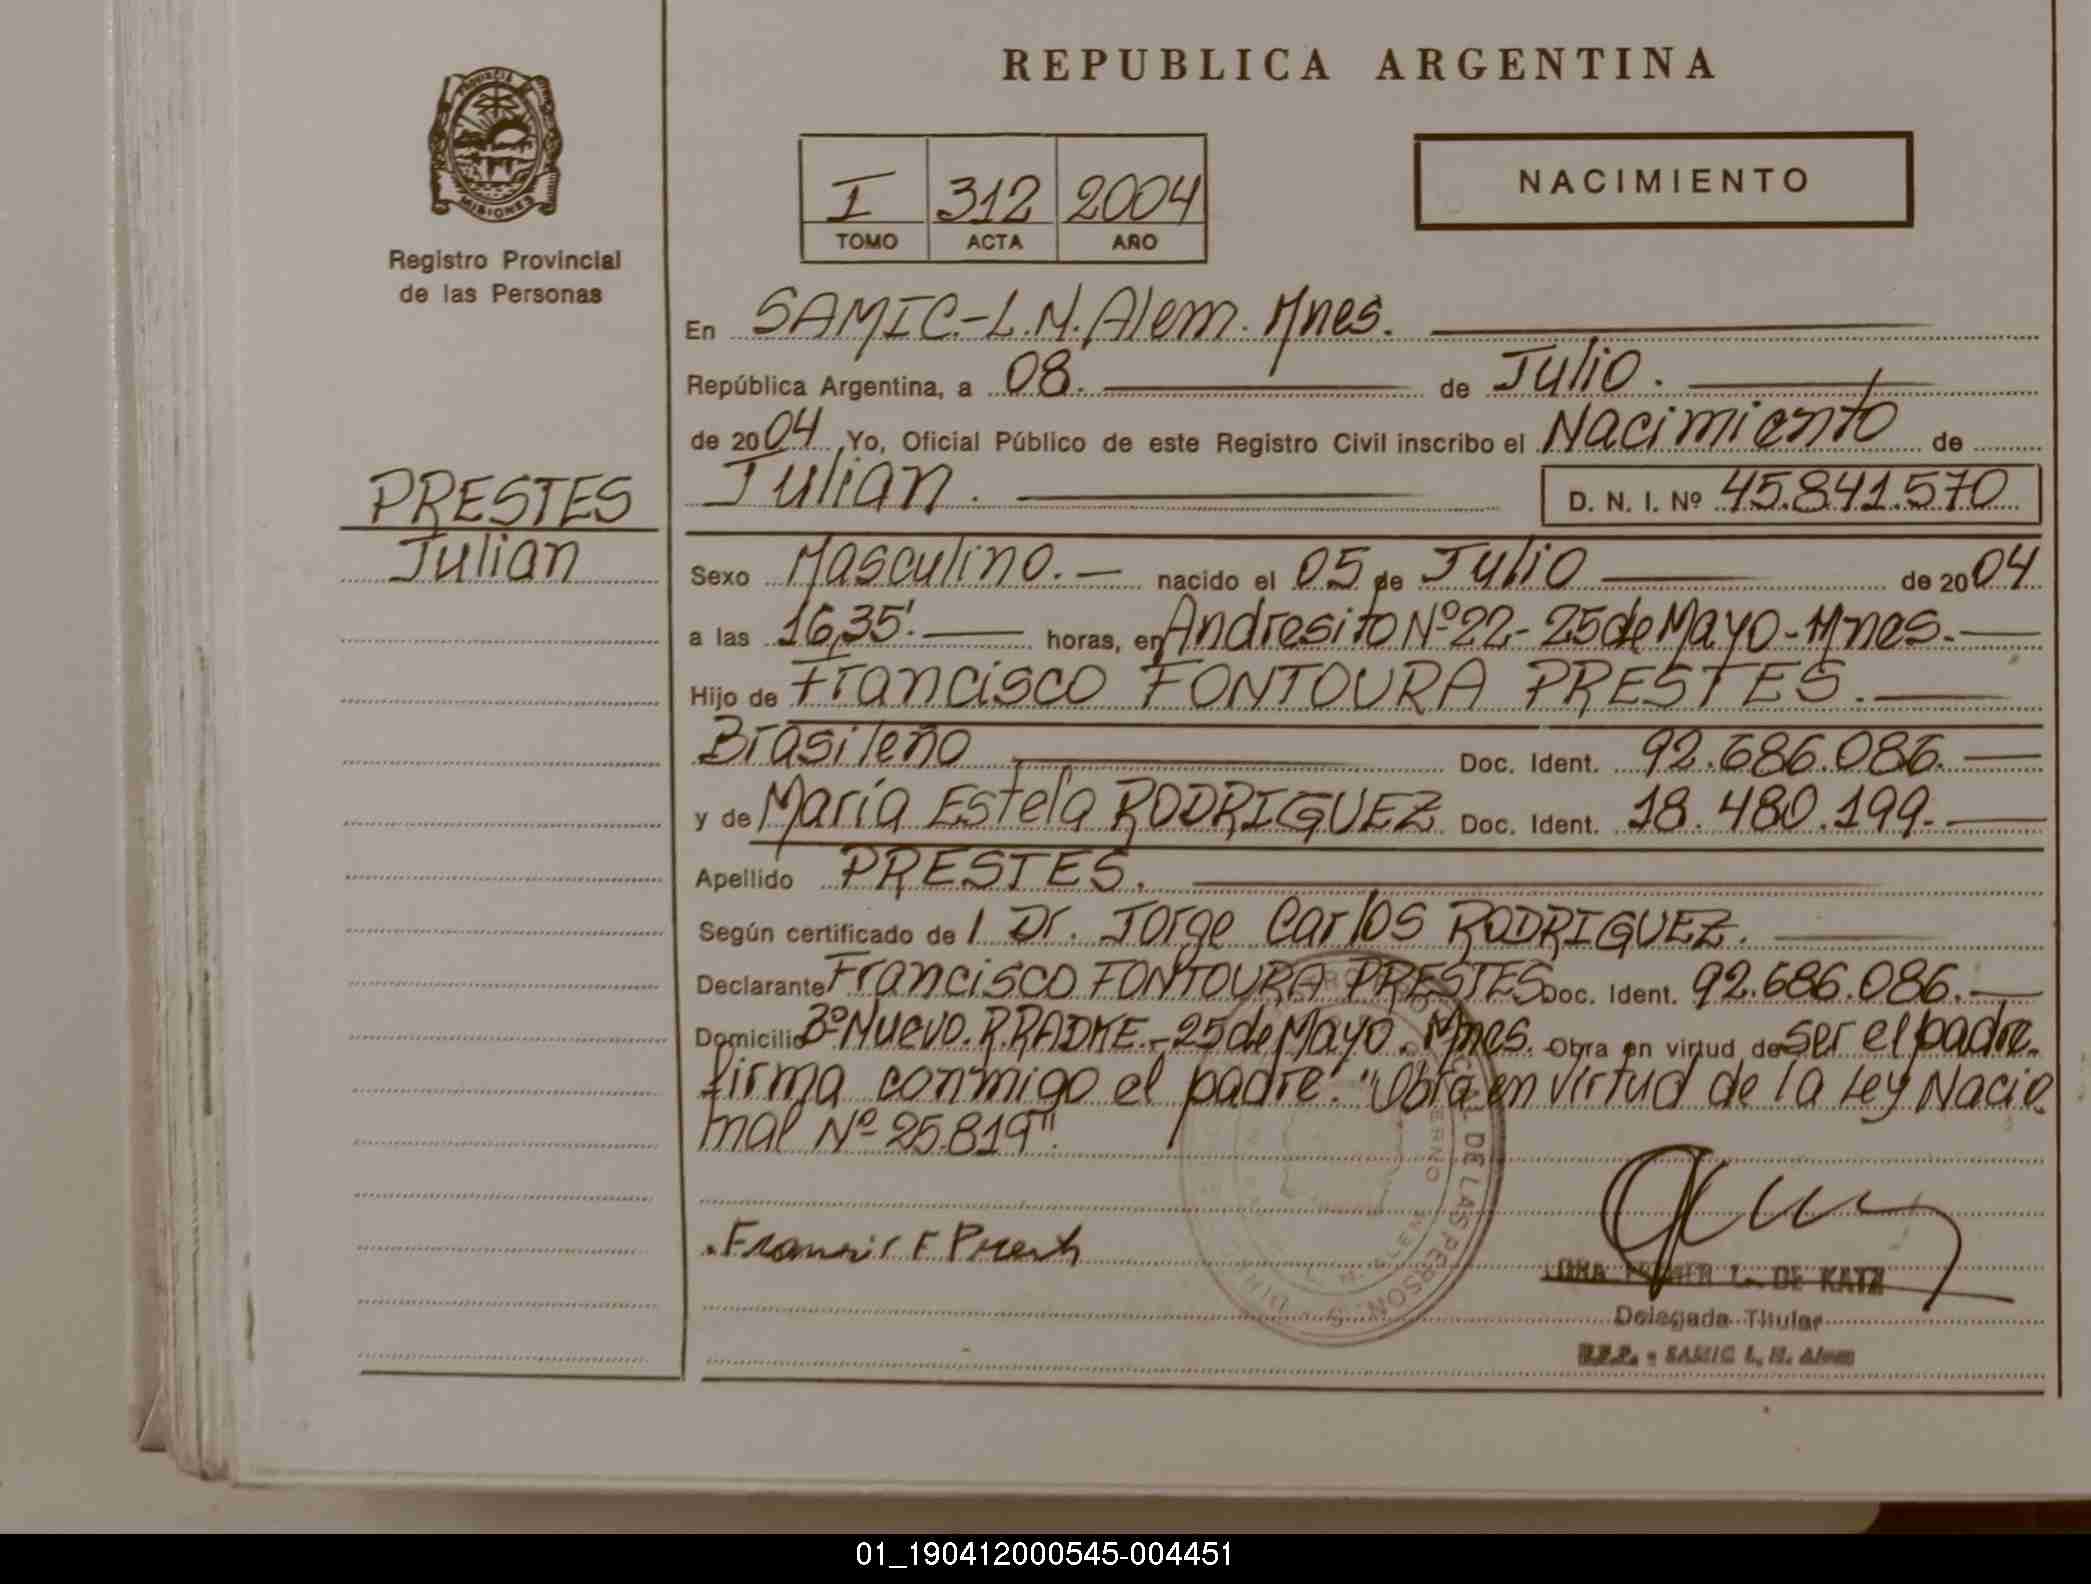 REPUBLICA ARGENTINA
PROVINCIA DE MISIONES
Registro Provincial
de las Personas
I 312 2004
TOMO ACTA AÑO
NACIMIENTO
En SAMIC.-L.N.Alem. Mnes.
República Argentina, a 08. de Julio.
de 2004 Yo, Oficial Público de este Registro Civil inscribo el Nacimiento de
Julian. D. N. I. Nº 45.841.570
PRESTES
Julian
Sexo Masculino.- nacido el 05 de Julio de 2004
a las 16,35'. horas, en Andresito Nº 22- 25 de Mayo- Mnes.-
Hijo de Francisco FONTOURA PRESTES.
Brasileño Doc. Ident. 92.686.086.
y de María Estela RODRIGUEZ Doc. Ident. 18.480.199.-
Apellido PRESTES.
Según certificado de l Dr. Jorge Carlos RODRIGUEZ.
Declarante Francisco FONTOURA PRESTES Doc. Ident. 92.686.086.-
Domicilio Bº Nuevo. R.RADKE.-25 de Mayo. Mnes. Obra en virtud de ser el padre.
firma conmigo el padre. "Obra en virtud de la Ley Nacio
nal Nº 25.819".
DE LAS PERSON
L. N. ALEM
DE KATZ
Delegada Titular
SAMIC L. N. Alem
01_190412000545-004451